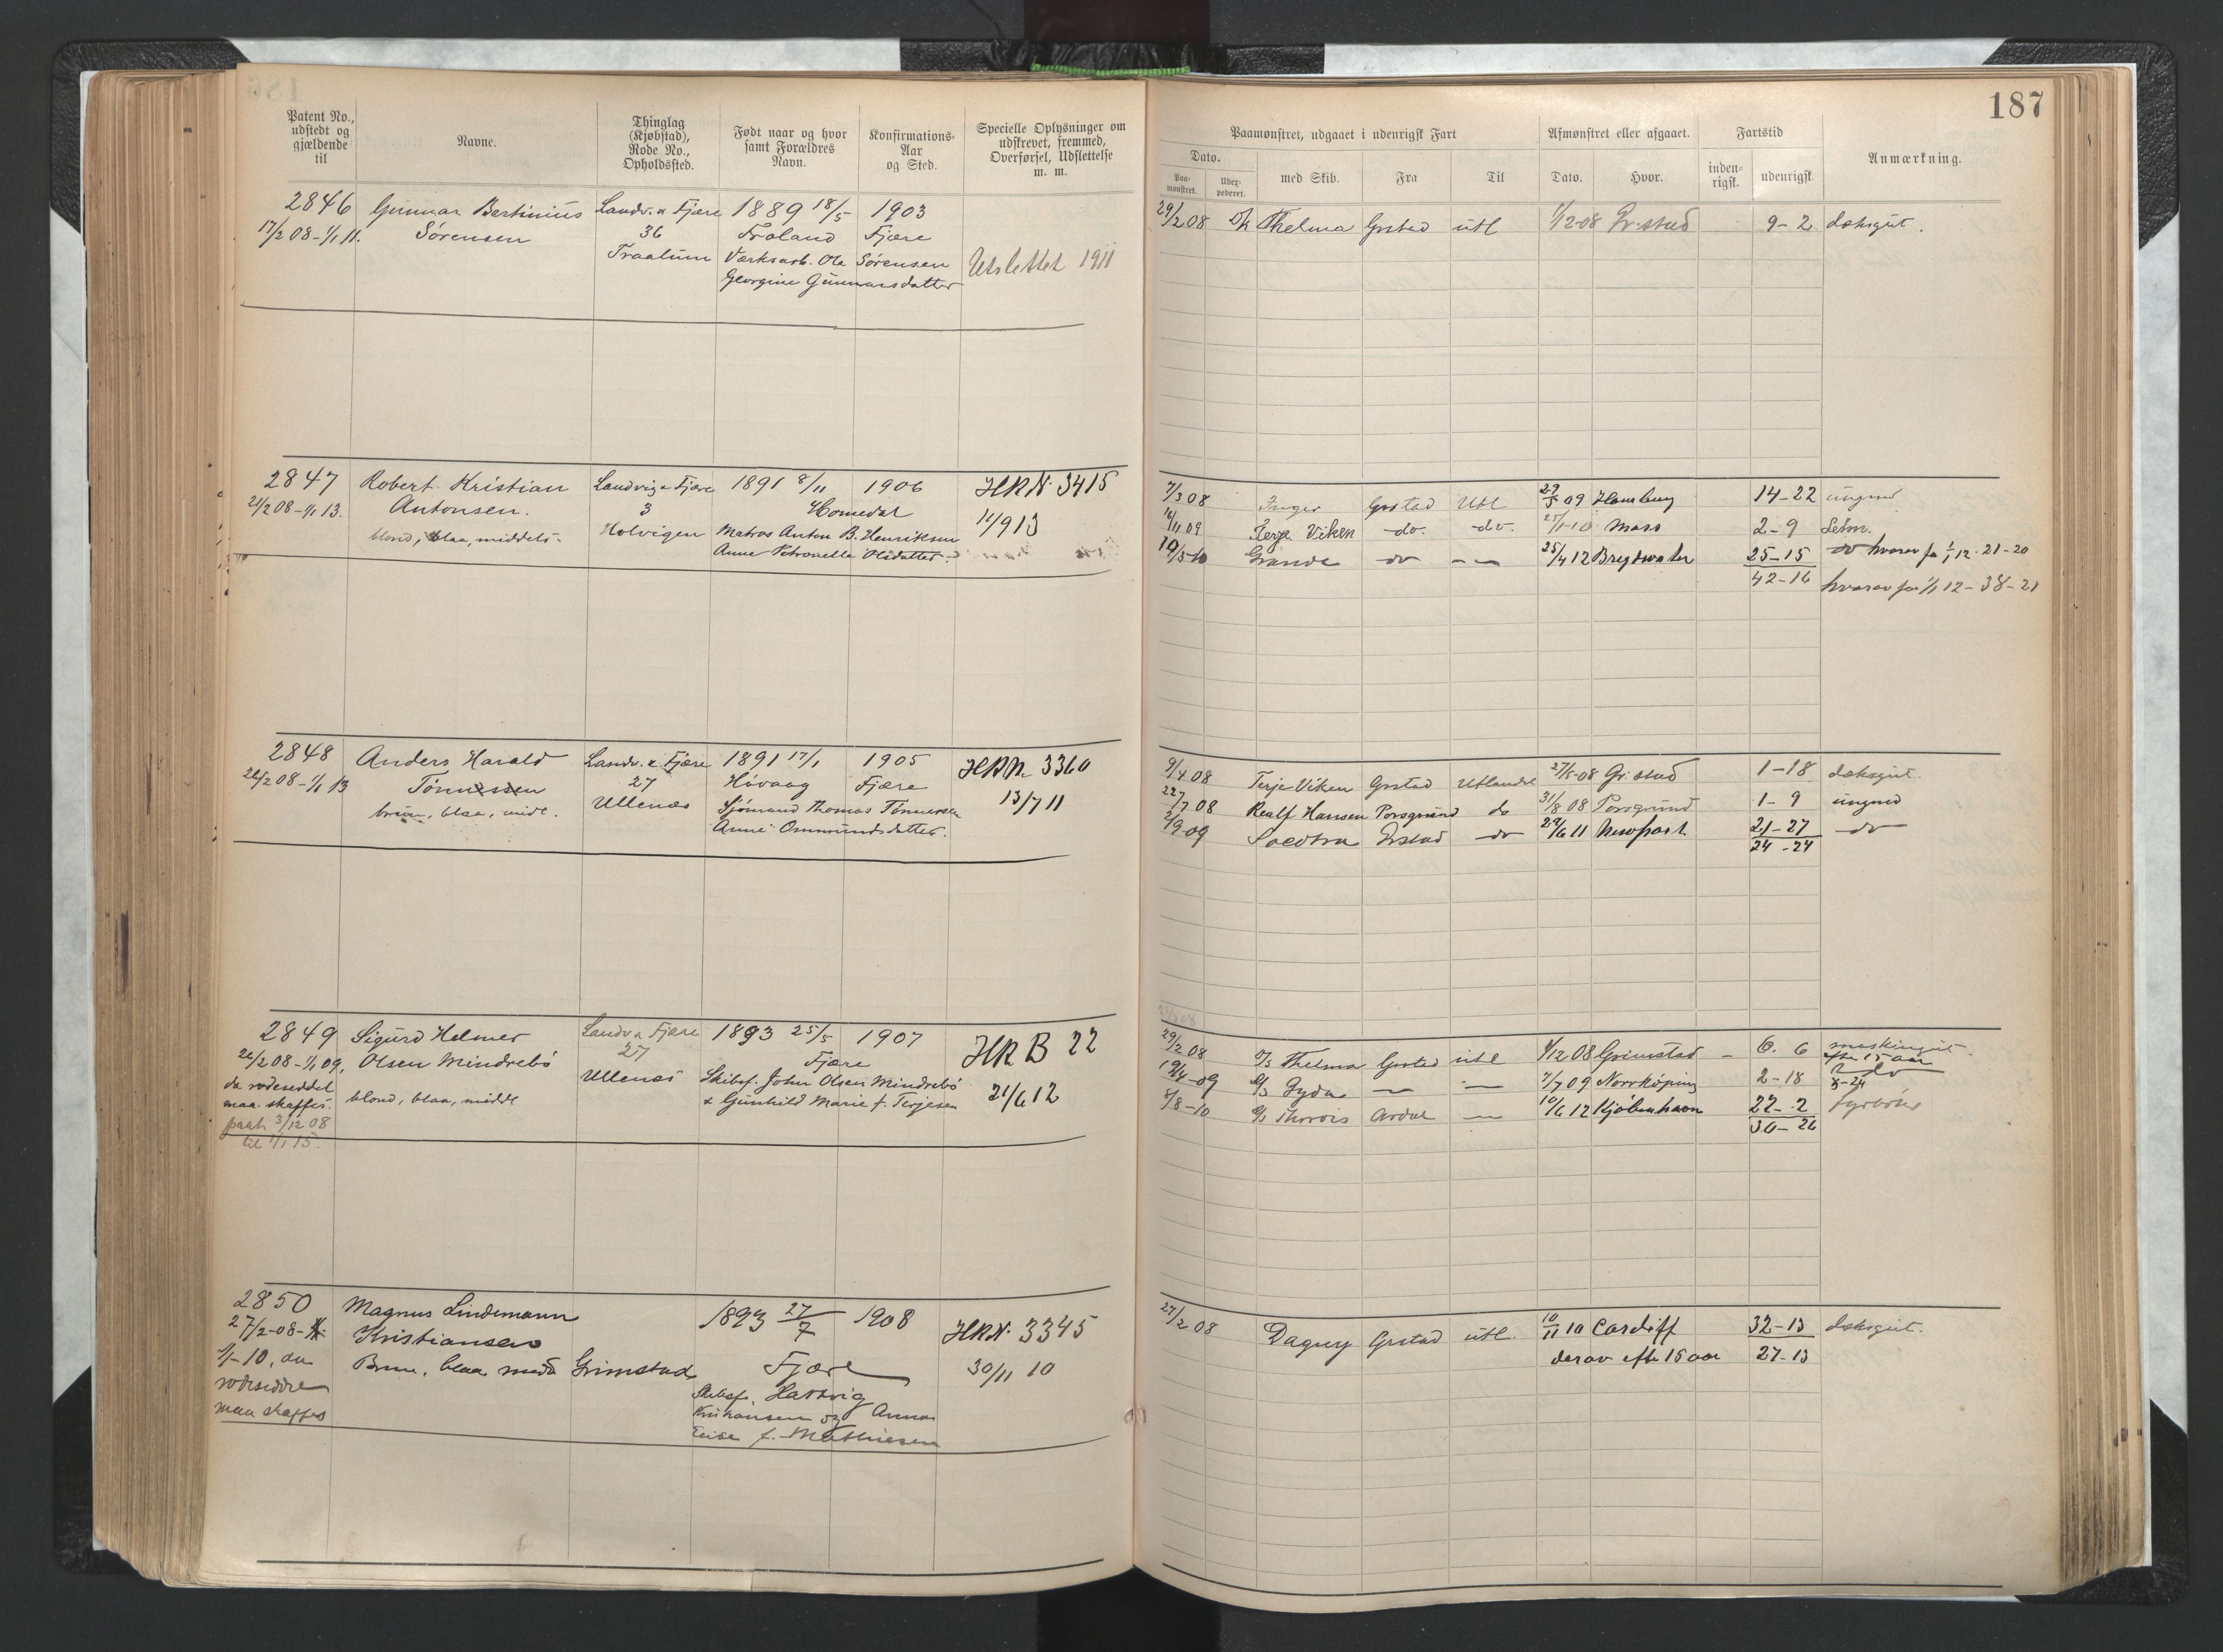 187
Patent No., udstedt og gjældende til
Navne.
Thinglag (Kjøbstad), Rode No., Opholdssted.
Født naar og hvor samt Forældres Navn.
Konfirmations-Aar og Sted.
Specielle Oplysninger om udskrevet, fremmed, Overførsel, Udslettelse m. m.
Paamønstret, udgaaet i udenrigsk Fart
Afmønstret eller afgaaet.
Fartstid
Anmærkning.
Dato.
Paa-mønstret.
Udex-pederet.
med Skib.
Fra
Til
Dato.
Hvor.
inden-rigsk.
udenrigsk.
2846 Gunnar Bertinius Landv. & Fjære 1889 18/5 1903
17/2 08 - 1/1 11. Sørensen 36 Froland Fjære
Traalum Værksarb. Ole Sørensen Utslettet 1911
Georgine Gunnarsdatter
29/2 08 Thelma Grstad utl 1/12-08 Gr.stad 9-2 dæksgut.
2847 Robert Kristian Landvig & Fjære 1891 8/11 1906 HRN. 3415
21/2 08 - 1/1 13. Antonsen. 3 Homedal 11/9 13
blond, blaa, middels. Holvigen Matros Anton B. Henriksen
Anne Petronelle Olsdatter.
7/3 08 Inger Grstad Utl 09 Hamburg 14-22 ungmd
11 09 Terje Viken do. do. Mass 2-9 Letm.
10/5 10 Grande do 25/4 12 Bregdwater 25-15 do hvorav før 1/1 12. 21-20
42-16 hvorav før 1/1 12 - 38-21
2848 Anders Harald Landv. & Fjære 1891 17/1 1905 HRN. 3360
26/2 08 - 1/1 13 Tønnessen 27 Høvaag Fjære 13/7 11
brun, blaa, midl. Ullenæs Sjømand Thomas Tønnessen
Anne Ommundsdatter.
9/4 08 Terje Viken Grstad Utlandet 27/5-08 Gr.stad 1-18 dæksgut.
22/7 08 Realf Hansen Porsgrund do 31/8 08 Porsgrund 1-9 ungmd
2/9-09 Socotra Grstad do 29/6 11 Newport 21-27 do
24-24
2849 Sigurd Helmer Landv & Fjære 1893 25/5 1907 HRB 22
26/2 08 - 1/1 09, Olsen Mindrebø 27 Fjære
da rodeseddel Ullenæs Skibsf. John Olsen Mindrebø 21/6 12
maa skaffes. blond, blaa, middl & Gunhild Marie f. Terjesen
3/12 08
til 1/1 15.
29/2 08 Thelma Grstad utl 1/12 08 Grimstad - 6. 6 maskingut.
efter 15 aar
19/4-09 Gyda 7/7 09 Norrköping 2-18 do
8-24
5/8-10 Thordis Ardal 10/6 12 Kjøbenhavn 22-2 fyrbøter
30-26
2850 Magnus Lindemann 1893 27/7 1908 HRN. 3345
27/2-08 - Kristiansen
1/1-10, da Brun, blaa midd Grimstad Fjære 30/11 10
rodeseddel Skibsf. Hartvig
maa skaffes Kristiansen og Anna
Luise f. Mathiesen
27/2 08 Dagny Grstad utl. 10/11 10 Cardiff 32-13 dæksgut.
derav efter 15 aar 27-13